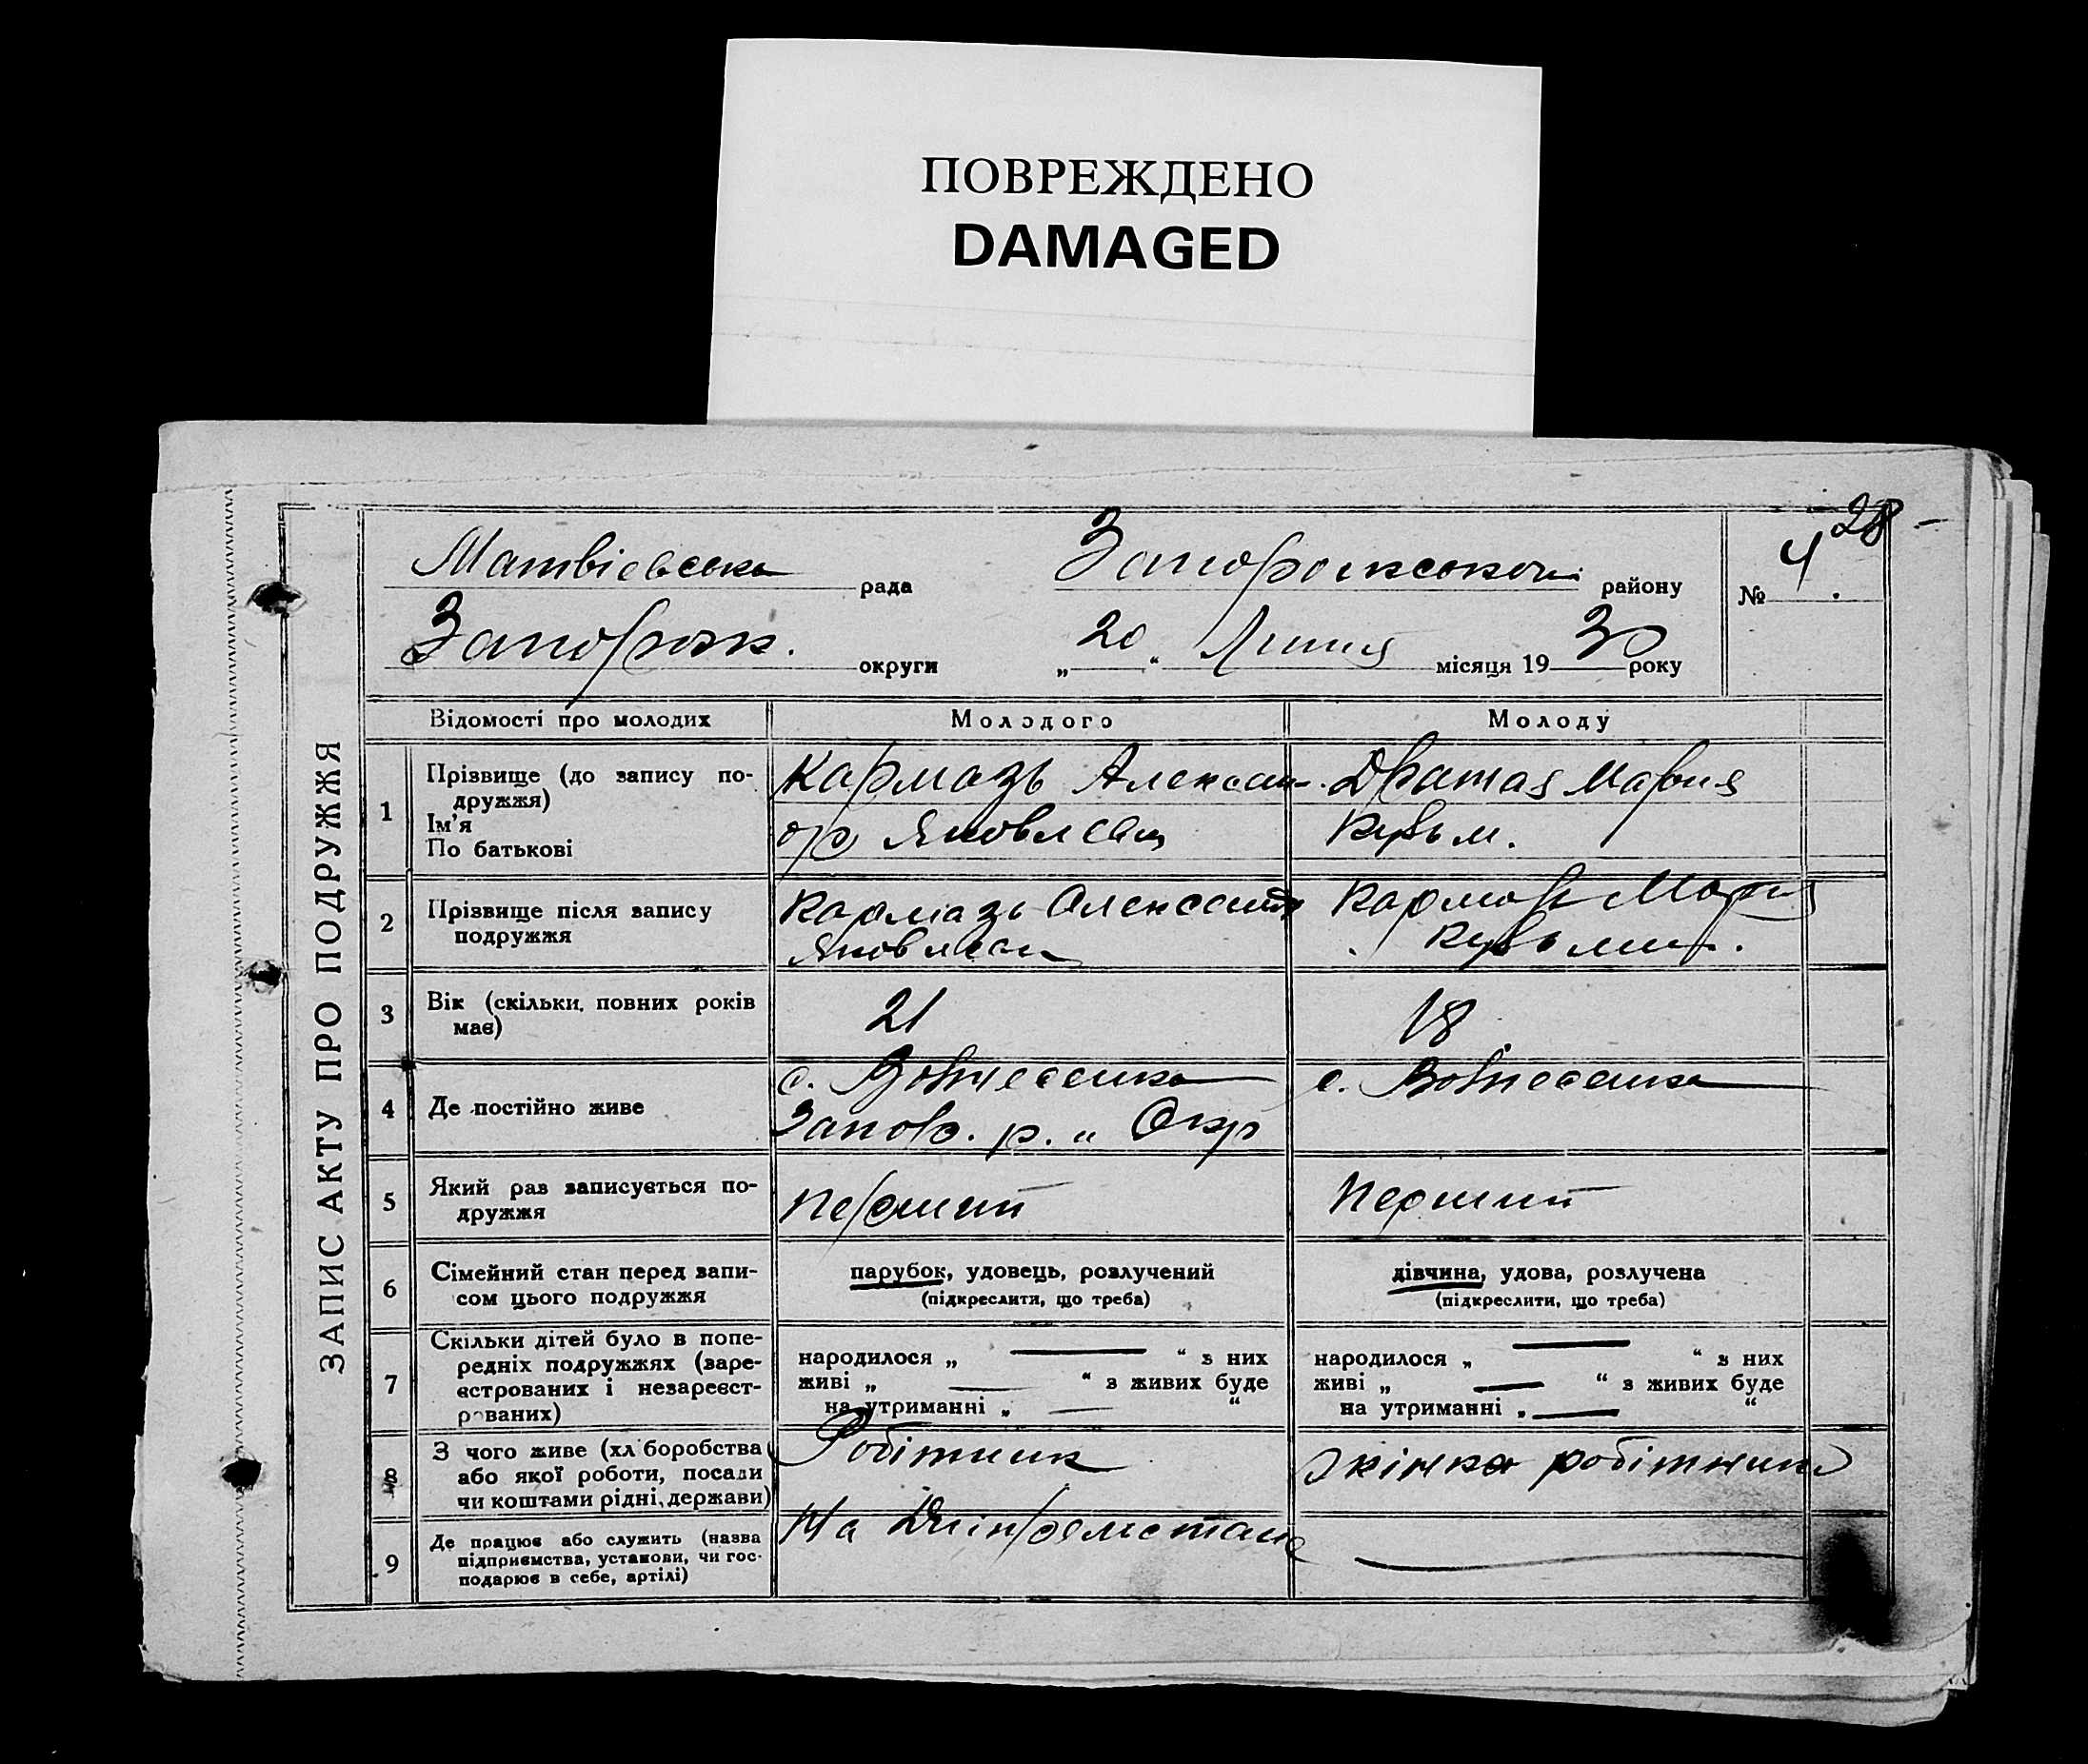 ПОВРЕЖДЕНО
DAMAGED
28
ЗАПИС АКТУ ПРО ПОДРУЖЖЯ
Матвіевська рада Запорожського району № 4
Запорож. округи „ 20 “ Липня місяця 1930 року
Відомості про молодих Молодого Молоду
1 Прізвище (до запису по-
дружжя)
Ім'я
По батькові
Кармазь Алексан-
др Яковлевич
Мария
Кузьм.
2 Прізвище після запису
подружжя
Кармазь Александр
Яковлевич
Кармазь Мария
Кузьмин.
3 Вік (скільки повних років
має)
21 18
4 Де постійно живе
с. Вознесенка
Запор. р. „ Окр
с. Вознесенка
5 Який раз записується по-
дружжя
перший перший
6 Сімейний стан перед запи-
сом цього подружжя
парубок, удовець, розлучений
(підкреслити, що треба)
дівчина, удова, розлучена
(підкреслити, що треба)
7 Скільки дітей було в попе-
редніх подружжях (заре-
єстрованих і незареєст-
рованих)
народилося „ — “ з них
живі „ — “ з живих буде
на утриманні „ — “
народилося „ — “ з них
живі „ — “ з живих буде
на утриманні „ — “
8 З чого живе (хліборобства
або якої роботи, посади
чи коштами рідні, держави)
Робітник
жінка робітника
9 Де працює або служить (назва
підприємства, установи, чи гос-
подарює в себе, артілі)
На —